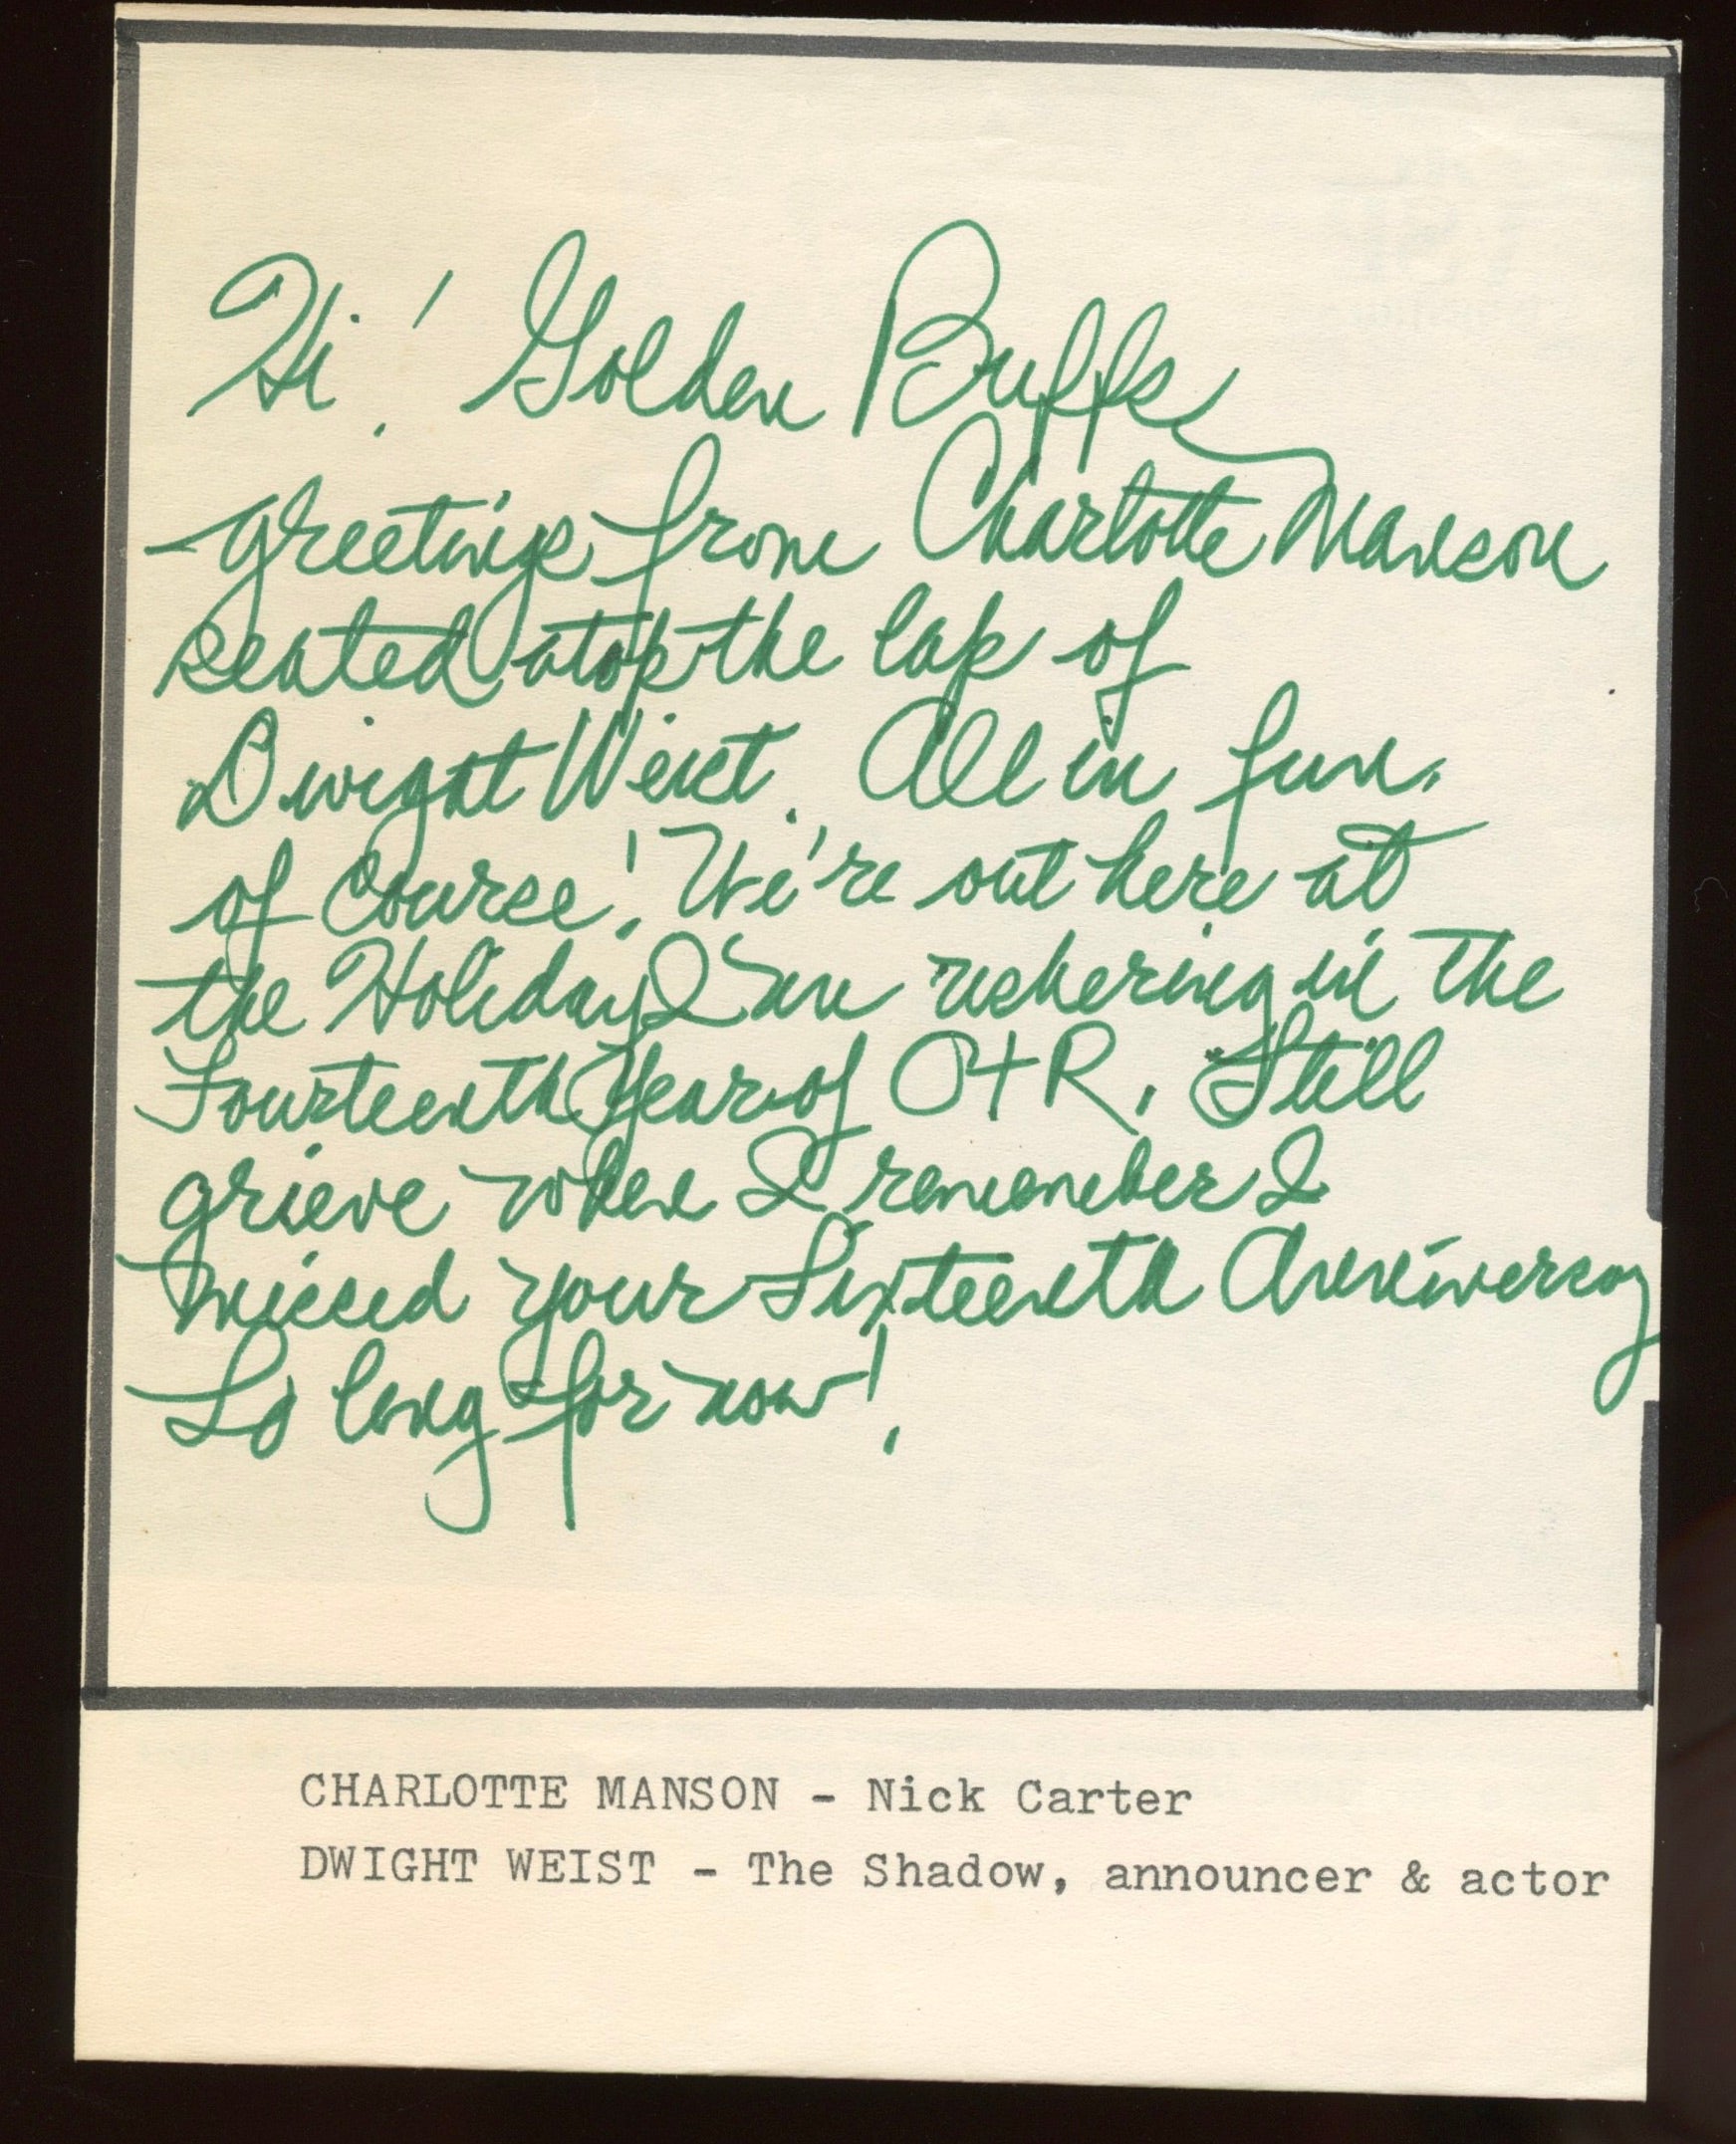 Hi! Golden Buffs
greetings from Charlotte Manson
seated atop the lap of
Dwight Weist. All in fun.
of course! We're out here at
the Holiday Inn ushering in the
Fourteenth Year of OTR. Still
grieve when I remember I
missed your Sixteenth Anniversary
So long for now!
CHARLOTTE MANSON - Nick Carter
DWIGHT WEIST - The Shadow, announcer & actor